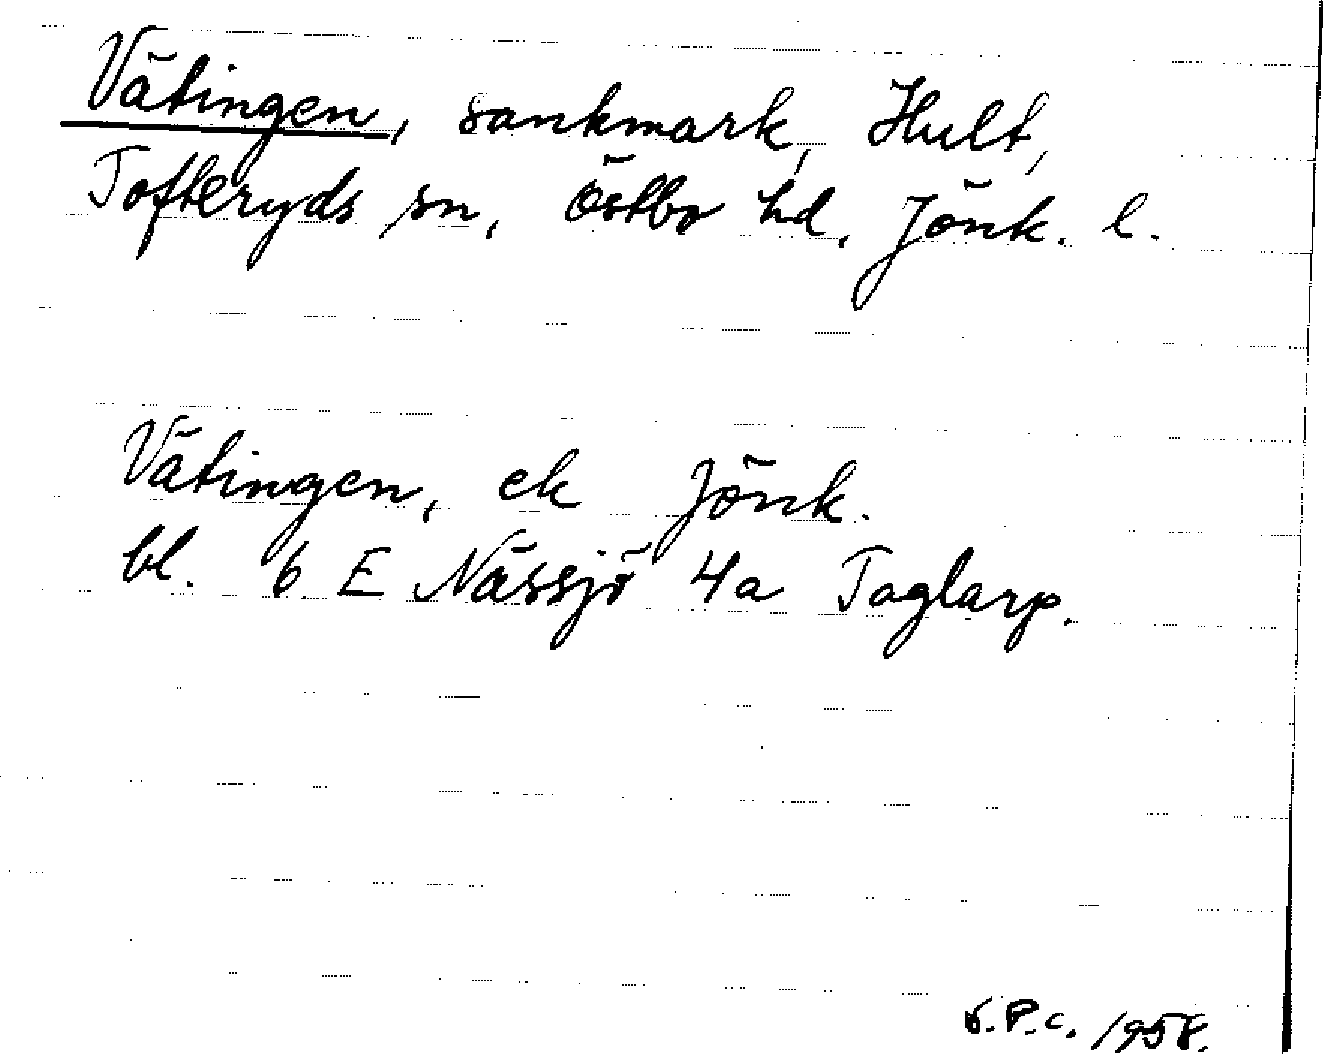 Vätingen, sankmark, Hult,
Tofteryds sn, Östbo hd. Jönk. l.
Vätingen, ek Jönk.
bl. 6 E Nässjö 4a Taglarp.
S.P.C. 1958.